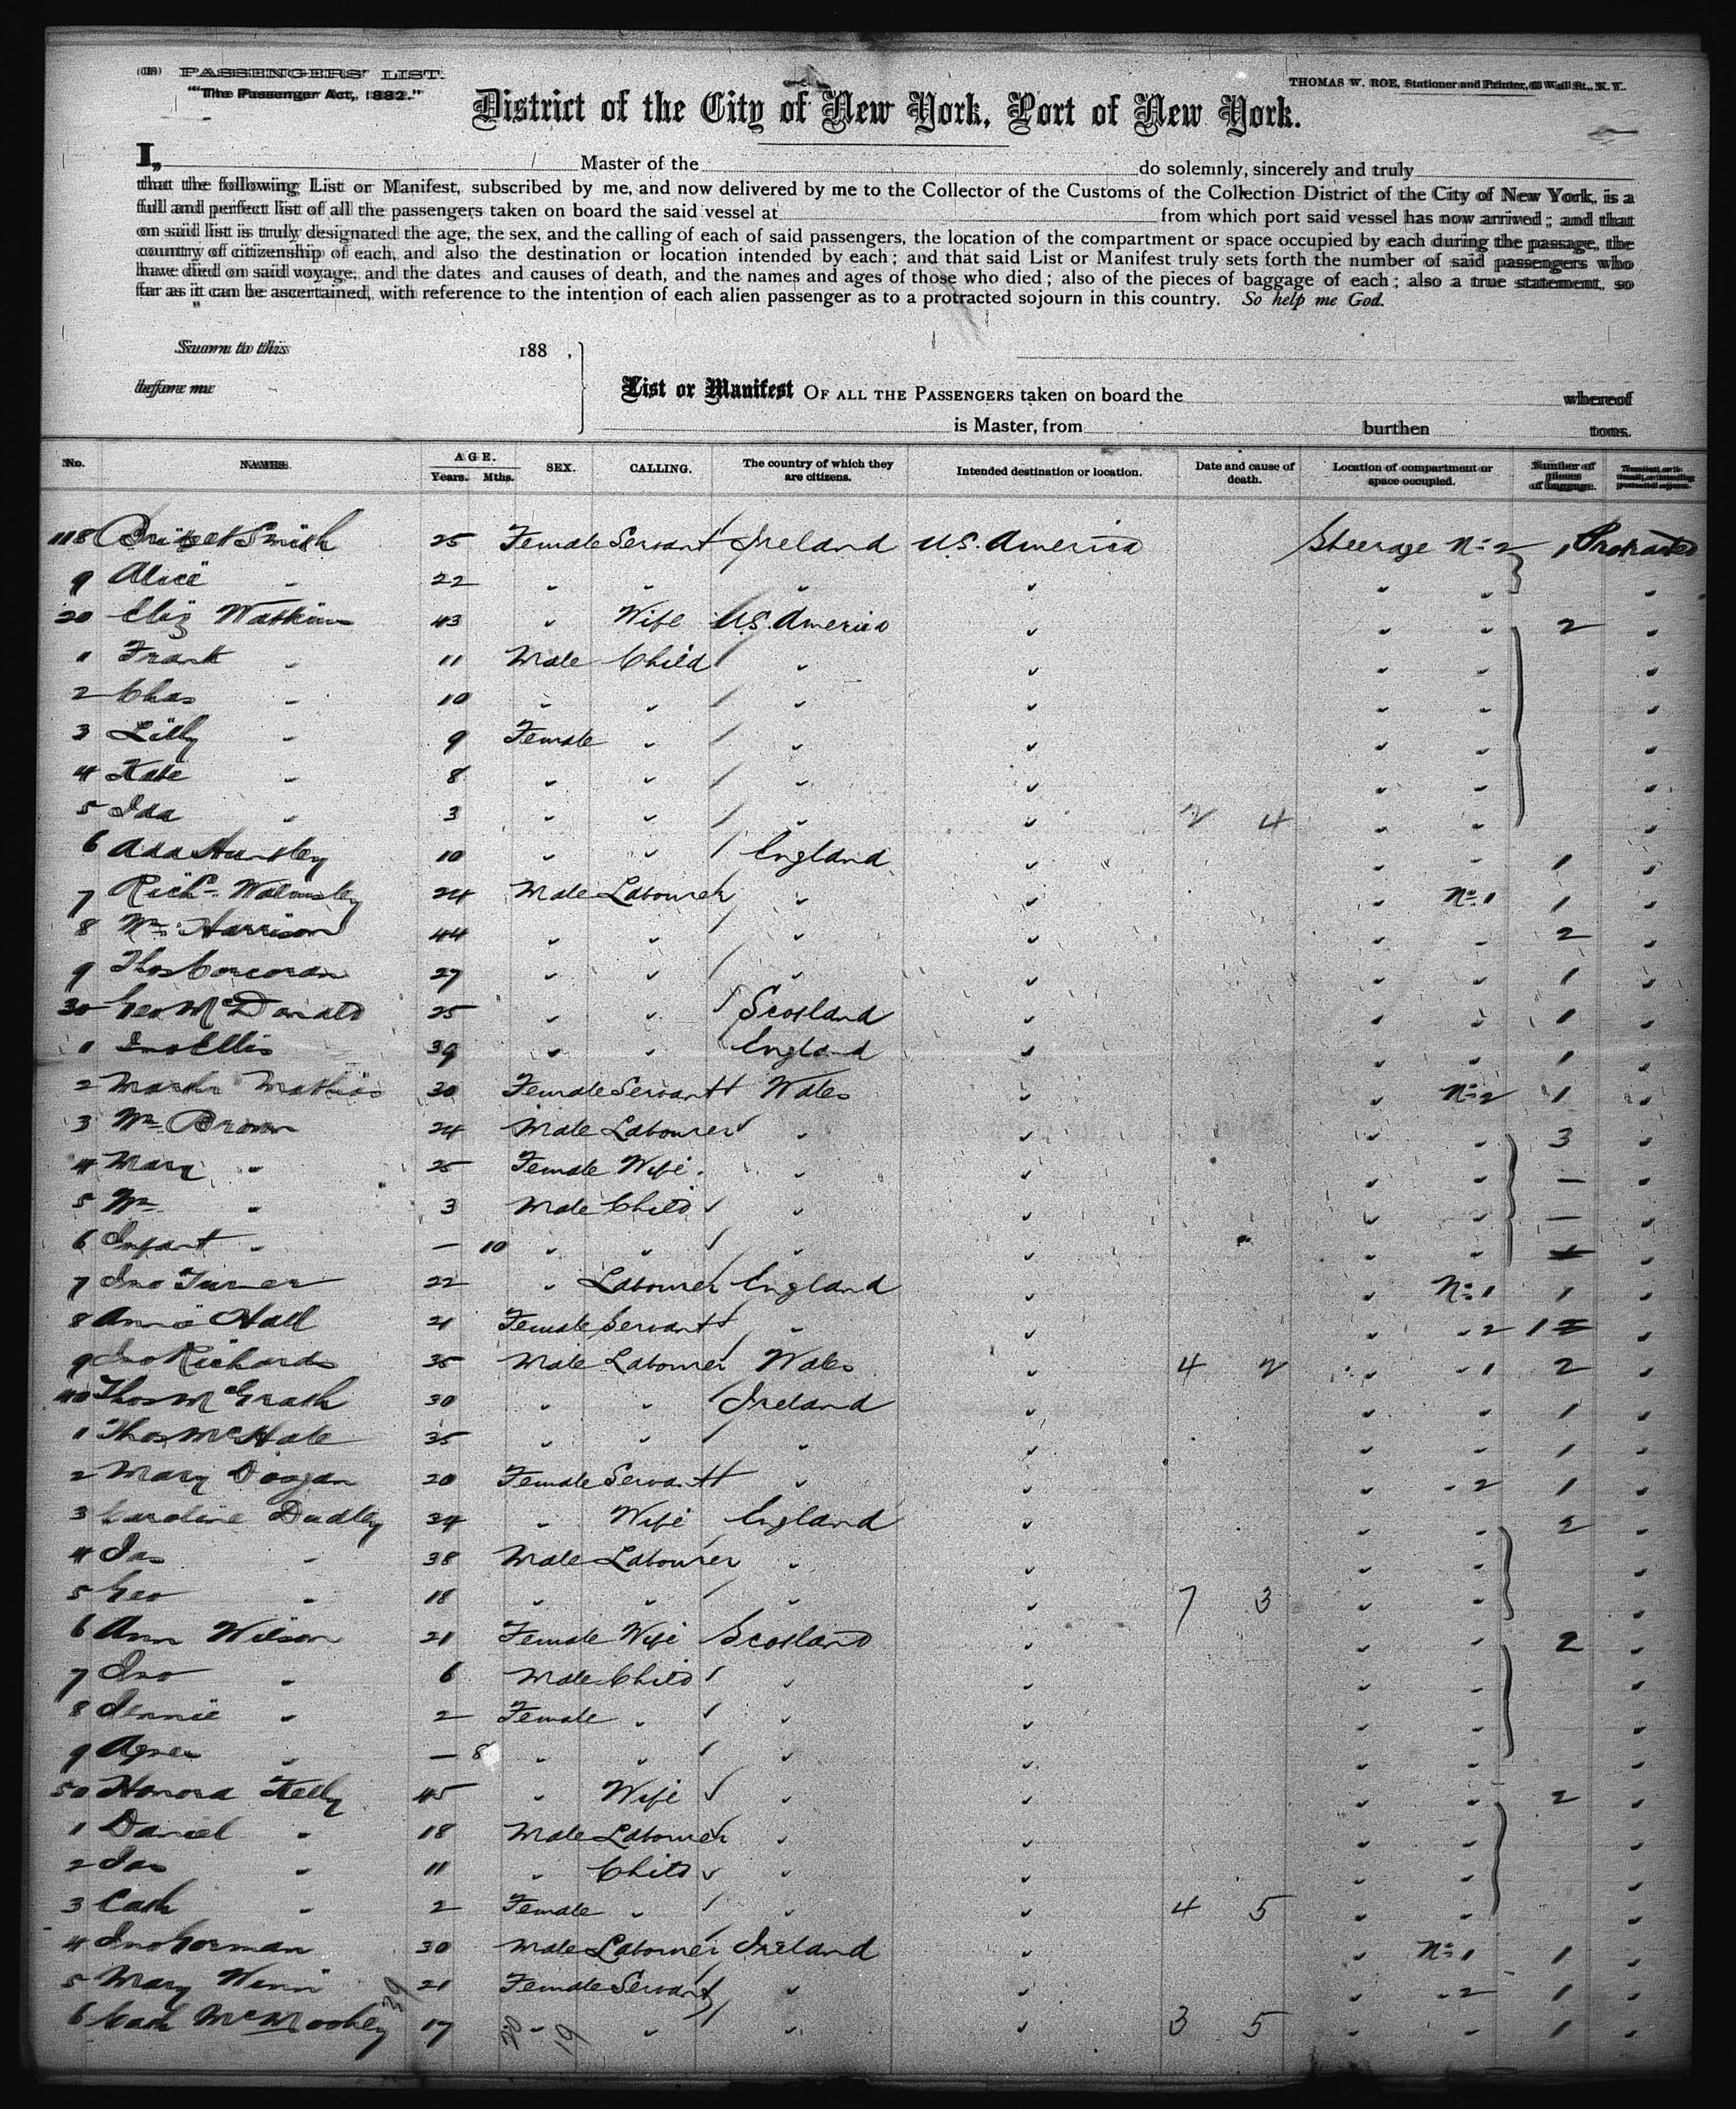 (118) PASSENGERS' LIST.
"The Passenger Act, 1882."
THOMAS W. ROE, Stationer and Printer, Wall St., N. Y.
District of the City of New York, Port of New York.
I, Master of the do solemnly, sincerely and truly
that the following List or Manifest, subscribed by me, and now delivered by me to the Collector of the Customs of the Collection District of the City of New York, is a
full and perfect list of all the passengers taken on board the said vessel at from which port said vessel has now arrived; and that
on said list is truly designated the age, the sex, and the calling of each of said passengers, the location of the compartment or space occupied by each during the passage, the
country of citizenship of each, and also the destination or location intended by each; and that said List or Manifest truly sets forth the number of said passengers who
have died on said voyage, and the dates and causes of death, and the names and ages of those who died; also of the pieces of baggage of each; also a true statement, so
far as it can be ascertained, with reference to the intention of each alien passenger as to a protracted sojourn in this country. So help me God.
Sworn to this 188 ,
before me
List or Manifest OF ALL THE PASSENGERS taken on board the whereof
is Master, from burthen tons.
No. NAMES. AGE. Years. Mths. SEX. CALLING. The country of which they are citizens. Intended destination or location. Date and cause of death. Location of compartment or space occupied. Number of pieces of baggage.
118 Bridget Smith 25 Female Servant Ireland U.S. America Steerage No 2 1 Protracted
9 Alice " 22 " " " " " " "
20 Eliz Watkins 43 " Wife U.S. America " " " 2 "
1 Frank " 11 Male Child " " " " "
2 Chas " 10 " " " " " " "
3 Lilly " 9 Female " " " " " "
4 Kate " 8 " " " " " " "
5 Ida " 3 " " " " 2 4 " " "
6 Ada Hunsley 10 " " England " " " 1 "
7 Richd Walmsley 24 Male Labourer " " " No 1 1 "
8 Wm Harrison 44 " " " " " " 2 "
9 Thos Corcoran 27 " " " " " " 1 "
30 Geo McDonald 25 " " Scotland " " " 1 "
1 Jno Ellis 39 " " England " " " 1 "
2 Martha Mathias 30 Female Servant Wales " " No 2 1 "
3 Wm Brown 24 Male Labourer " " " " 3 "
4 Mary " 25 Female Wife " " " " — "
5 Wm " 3 Male Child " " " " — "
6 Infant " — 10 " " " " " " "
7 Jno Turner 22 " Labourer England " " No 1 1 "
8 Annie Hall 21 Female Servant " " " " 2 1 "
9 Jno Richards 35 Male Labourer Wales " 4 2 " " 1 2 "
40 Thos McGrath 30 " " Ireland " " " 1 "
1 Thos McHale 35 " " " " " " 1 "
2 Mary Doogan 20 Female Servant " " " " 2 1 "
3 Caroline Dudley 34 " Wife England " " " 2 "
4 Jas " 38 Male Labourer " " " " "
5 Geo " 18 " " " " 7 3 " " "
6 Ann Wilson 21 Female Wife Scotland " " " 2 "
7 Jno " 6 Male Child " " " " "
8 Jennie " 2 Female " " " " " "
9 Agnes " — 8 " " " " " " "
50 Honora Kelly 45 " Wife " " " " 2 "
1 Daniel " 18 Male Labourer " " " " "
2 Jas " 11 " Child " " " " "
3 Cath " 2 Female " " " 4 5 " " "
4 Jno Gorman 30 Male Labourer Ireland " " No 1 1 "
5 Mary Winn 21 Female Servant " " " " 2 1 "
6 Cath 17 " " " " 3 5 " " 1 "
39 20 19